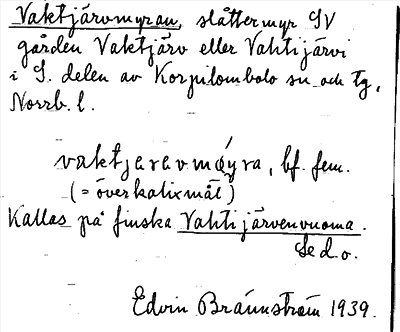 Vaktjärvmyran, slåttermyr SV
gården Vaktjärv eller Vahtijärvi
i S. delen av Korpilombolo sn och tg,
Norrb. l.
vaktjaravmøyra, bf. fem.
(= överkalixmål)
Kallas på finska Vahtijärvenvuoma.
Se d. o.
Edvin Brännström 1939.